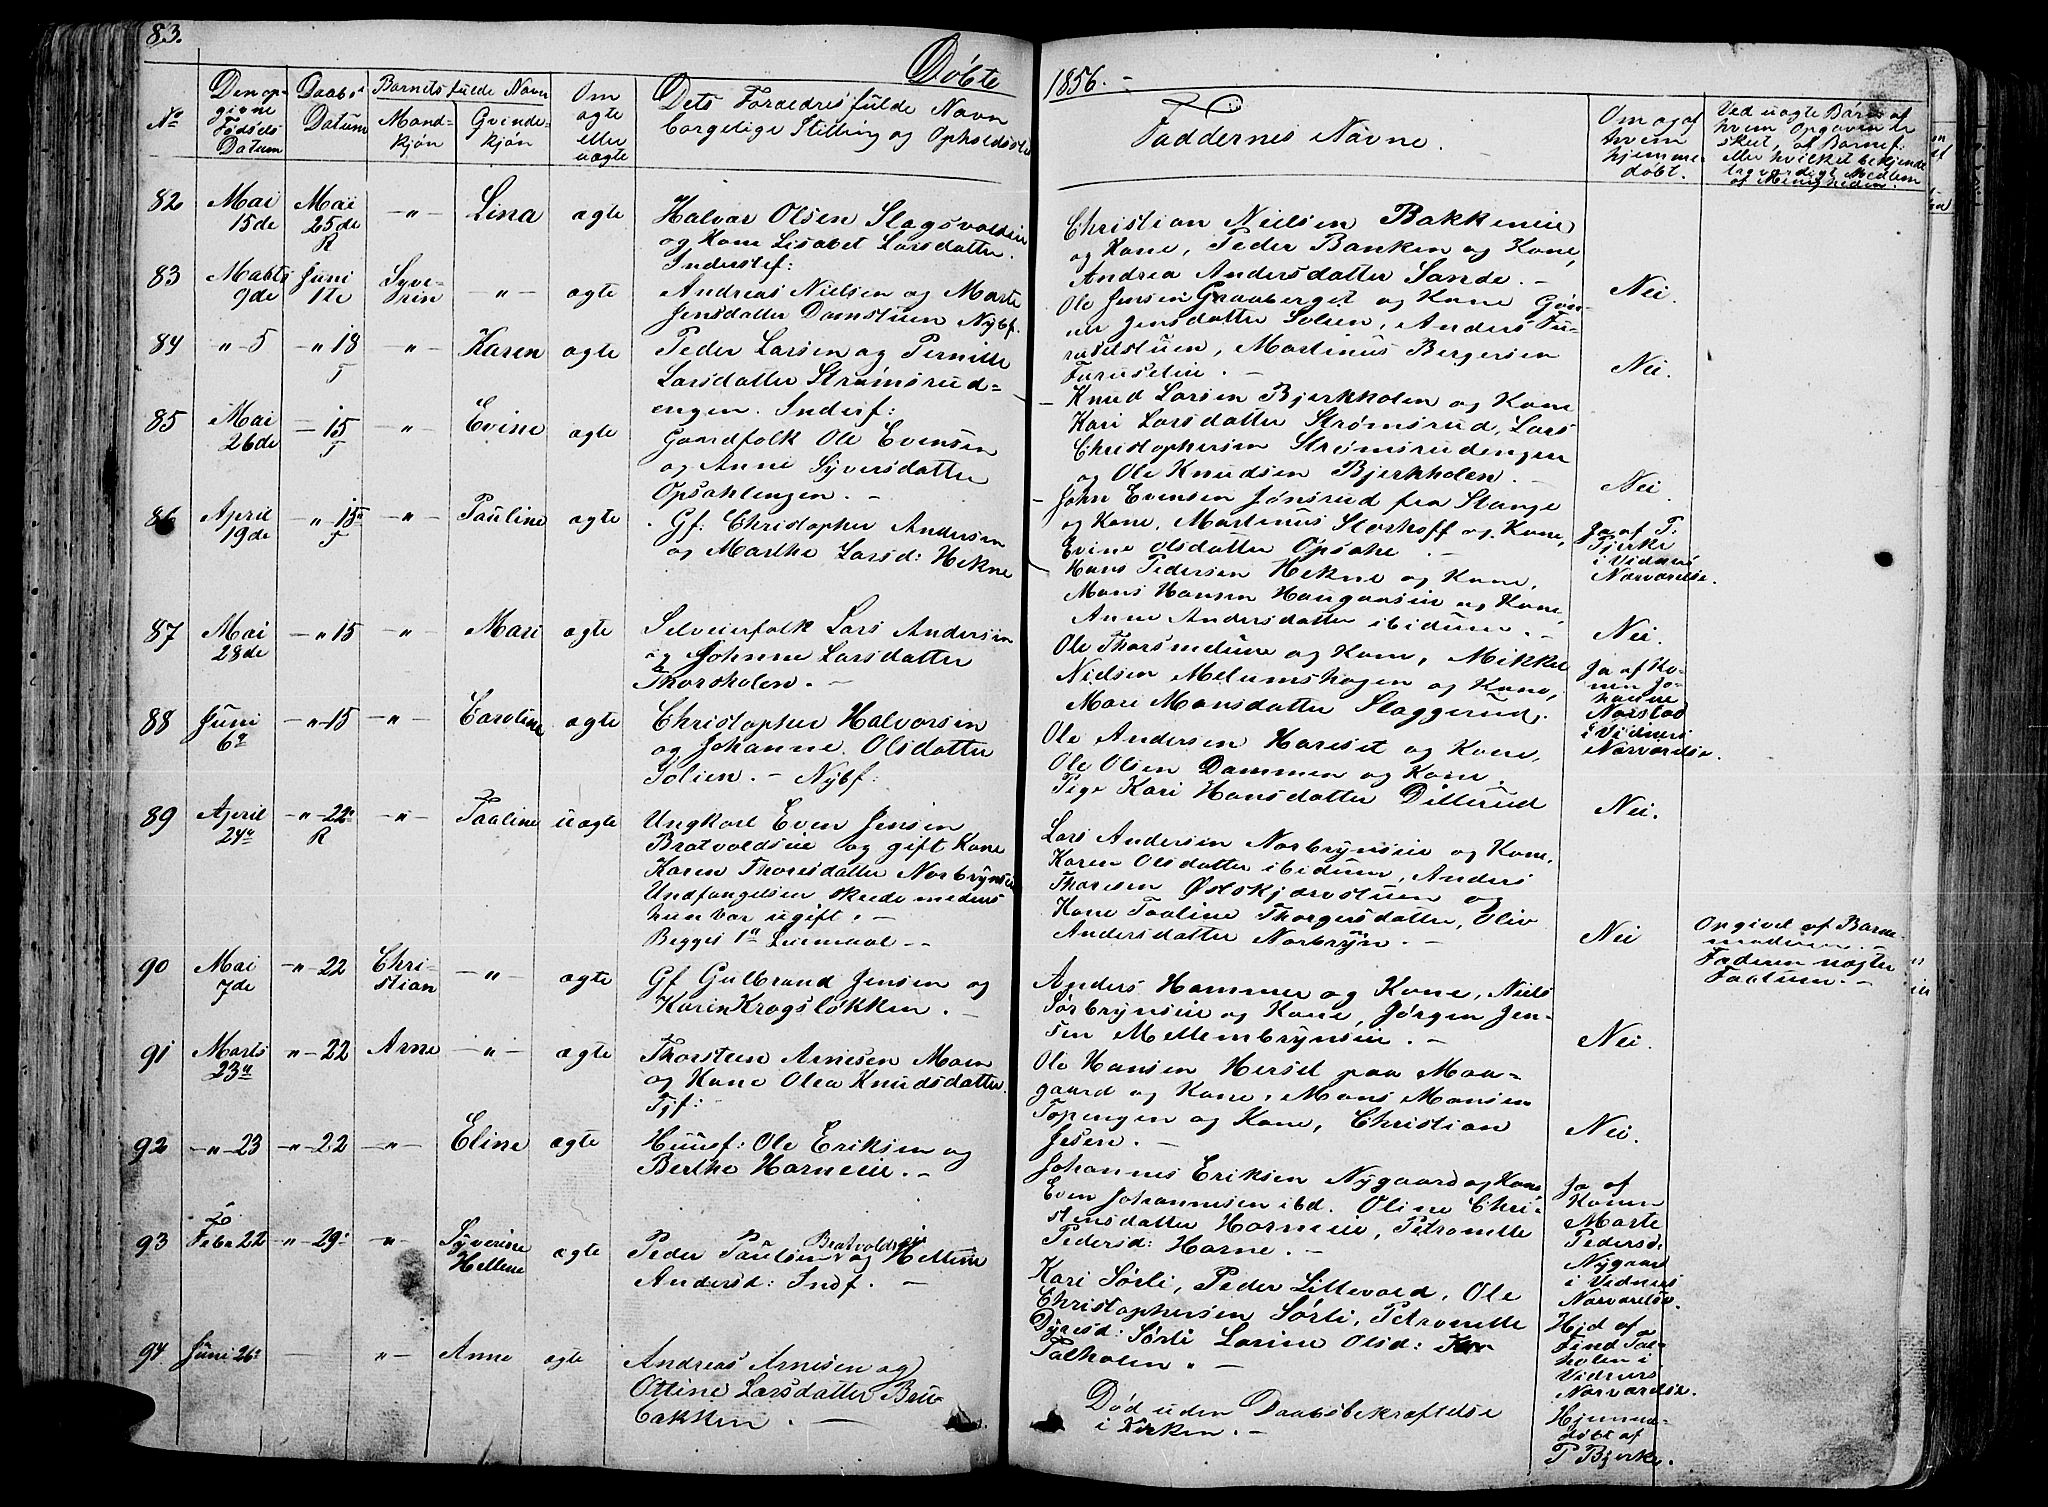 83.
Döbte
1856. -
No
Den op-
givne
Födsels
Datum
Daabs
Datum
Barnets fulde Navn
Mand-
kjön
Qvinde-
kjön
Om
ægte
eller
uægte
Dets Forældres fulde Navn
borgelige Stilling og Opholdssted
Faddernes Navne.
Om og af
hvem
hjemme-
döbt.
Ved uægte Börn af
hvem Opgaven er
skeet, af Barnef.
eller hvilket bekjendt
troværdigt Medlem
af Menigheden.
82
Mai
15de
Mai
25de
R
-"-
Lina
ægte
Halvar Olsen Slagsvoldeie
og Kone Lisabet Larsdatter.
Inderstf:
Christian Nielsen Bakkeneie
og Kone, Peder Banken og Kone,
Andrea Andersdatter Sande. -
Nei
83
Marts
9de
Juni
1te
Syve-
rin
-"-
ægte
Andreas Nielsen og Marte
Jensdatter Damstuen Nybf.
Ole Jensen Graaberget og Kone Gön-
ner Jensdatter Solien, Anders Fu-
ruselstuen, Martinus Bergersen
Furuseleie. -
Nei.
84
" 5
-" 18
F
-"-
Karen
ægte
Peder Larsen og Pernille
Larsdatter Strømsrud-
engen. Inderf:
Knud Larsen Bjerkholen og Kone
Kari Larsdatter Strømsrud, Lars
Christophersen Strømsrudengen
og Ole Knudsen Bjerkholen. -
Nei
85
Mai
26de
- 15
F
-"-
Evine
ægte
Gaardfolk Ole Evensen
og Anne Syversdatter
Opsahlengen. -
John Evensen Jønsrud fra Stange
og Kone, Martinus Storhoff og Kone,
Evine Olsdatter Opsahl. -
86
April
19de
-" 15
F
-"-
Pauline
ægte
Gf: Christopher Andersen
og Marthe Larsd: Hekne
Hans Pedersen Hekne og Kone,
Mons Hansen Hauganseie og Kone,
Anne Andersdatter ibidum. -
Ja af P.
Bjerke
i Vidners
Nærværelse.
87
Mai
28de
-" 15
-"-
Mari
ægte
Selveierfolk Lars Andersen
og Johnne Larsdatter
Thorsholen. -
Ole Thorsmduen og Kone, Mikkel
Nielsen Melumshagen og Kone,
Mari Monsdatter Slaggerud.
Nei.
88
Juni
6te
-"-15
-"-
Caroline
ægte
Christopher Halvorsen
og Johanne Olsdatter
Solien. - Nybf:
Ole Andersen Hareset og Kone,
Ole Olsen Dammen og Kone,
Pige Kari Hansdatter Dillerud
Ja af Ko-
nen Jo-
hanne
Norstad
i Vidners
Nærværelse.
Nei.
89
April
24de
-"-22
R
-"-
Paaline
uægte
Ungkarl Even Jensen
Bratvoldseie og gift Kone
Karen Thoresdatter Norbrynseie
Undfangelsen skeede medens
hun var ugift. -
Begges 1ste Leiermaal --
Lars Andersen Norbrynseie og Kone,
Karen Olsdatter ibidum, Anders
Thoresen Østskjærvstuen og
Kone Paaline Thorgersdatter, Oliv
Andersdatter Norbryn. -
Nei
Opgivet af Barne-
moderen. -
Faderen nægter
Factum. -
90
Mai
7de
-"-22
Chri-
stian
-"-
ægte
Gf Gulbrand Jensen og
Karin Krogsløkken. -
Anders Hammer og Kone, Niels
Sørbrynseie og Kone, Jørgen Jen-
sen Mellembrynseie. -
Nei.
91
Marts
23de
"-22
Arne
-"-
ægte
Thorsteen Arnesen Moen
og Kone Olea Knudsdatter.
Tjf:
Ole Hansen Herset paa Maa-
gaard og Kone, Mons Monsen
Topengen og Kone, Christian
Jesen. -
Nei.
92
-"-23
-"-22
-"-
Eline
ægte
Huusf: Ole Eriksen og
Berthe Horneeie. -
Johannes Eriksen Nygaard og Kone
Even Johannesen ibd. Oline Chri-
stensdatter Horneeie, Petronelle
Pedersd: Horne. -
Ja af
Konen
Marte
Pedersd:
Nygaard
i Vidners
Nærværelse.
93
Febr 22
-"-29
-"-
Syverine
Hellene
ægte
Peder Paulsen Bratvoldseie og Hellene
Andersd: Indf. -
Kari Sørli, Peder Lillevold, Ole
Christophersen Sørli, Petronelle
Dyresd: Sørli Lorine Olsd:
Talholen. -
Hjd af
Find Tal-
holen i
Vidners
Nærværelse.
94
Juni 26
-
"-
Anne
ægte
Andreas Arnesen og
Ottine Larsdatter Bru-
bakken. -
Död uden Daabsbekræftelse
i Kirken. -
Hjemme-
döbt af
P Bjerke.